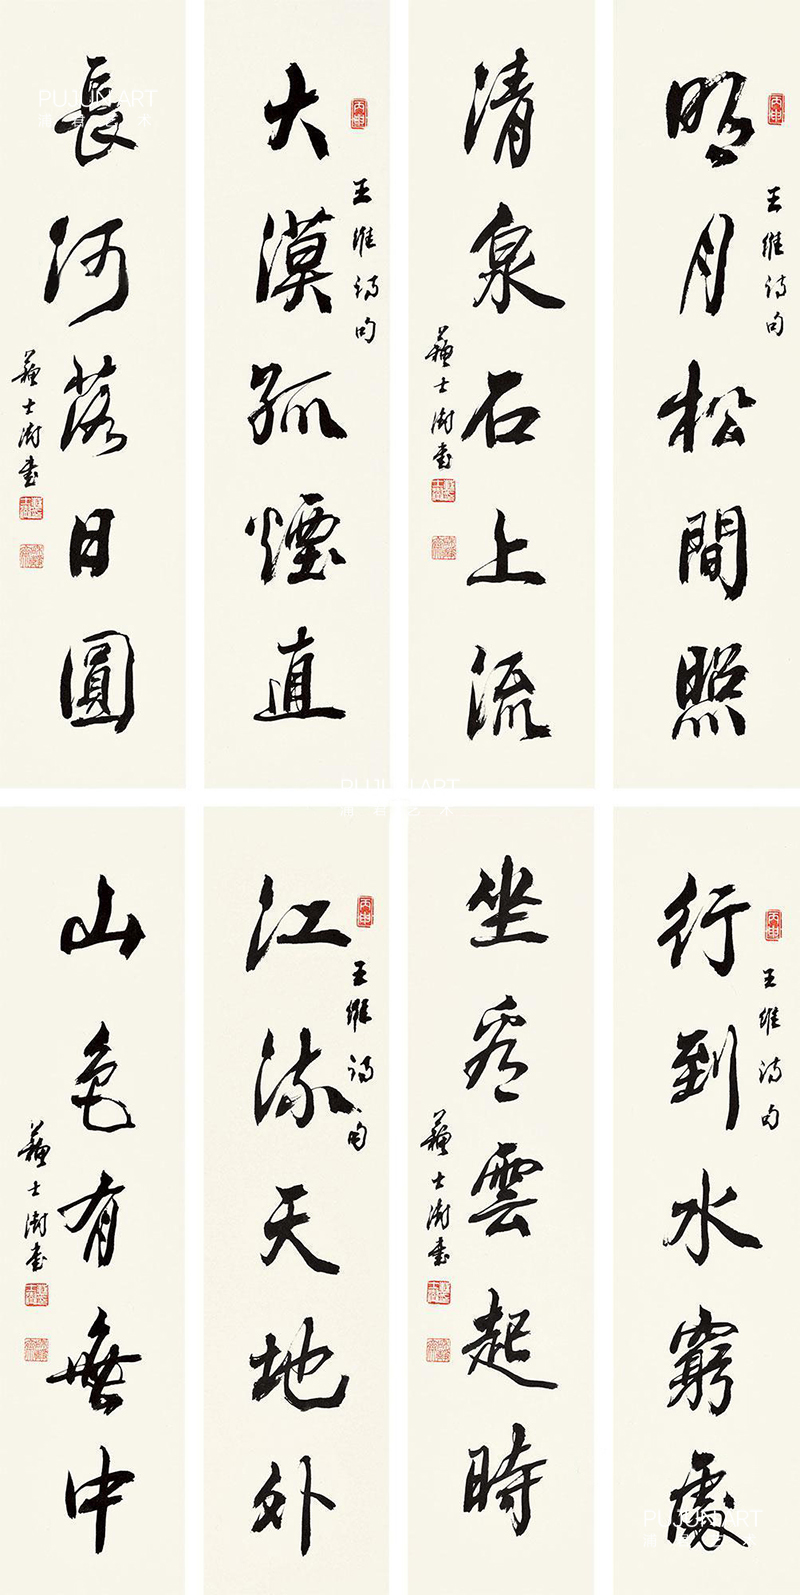 丙申
王維詩句
明月松間照
清泉石上流
蘇士澍書
丙申
王維詩句
大漠孤煙直
長河落日圓
蘇士澍書
丙申
王維詩句
行到水窮處
坐看雲起時
蘇士澍書
丙申
王維詩句
江流天地外
山色有無中
蘇士澍書
PUJUN ART
PUJUN ART
PUJUN ART